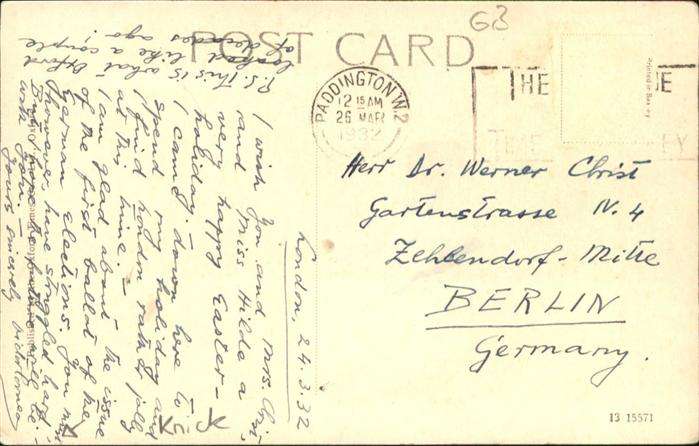 POST CARD
G3
PADDINGTON. W.2
12 15 AM
26 MAR
1932
THE
Herr Dr. Werner Christ
Gartenstrasse N. 4
Zehlendorf-Mitte
BERLIN
Germany.
13 15571
London, 24.3.32
I wish you and Mrs. Christ,
and Miss Hilde a
very happy Easter-
holiday.
I came down here to
spend my holiday and
I find London rather jolly
at this time. –
I am glad about the issue
of the first ballot of the
German Elections. You must
however, have struggled hard.
with you. –
Yours sincerely
P.S. This is what Oxford
looked like a couple
of decades ago!
Knick